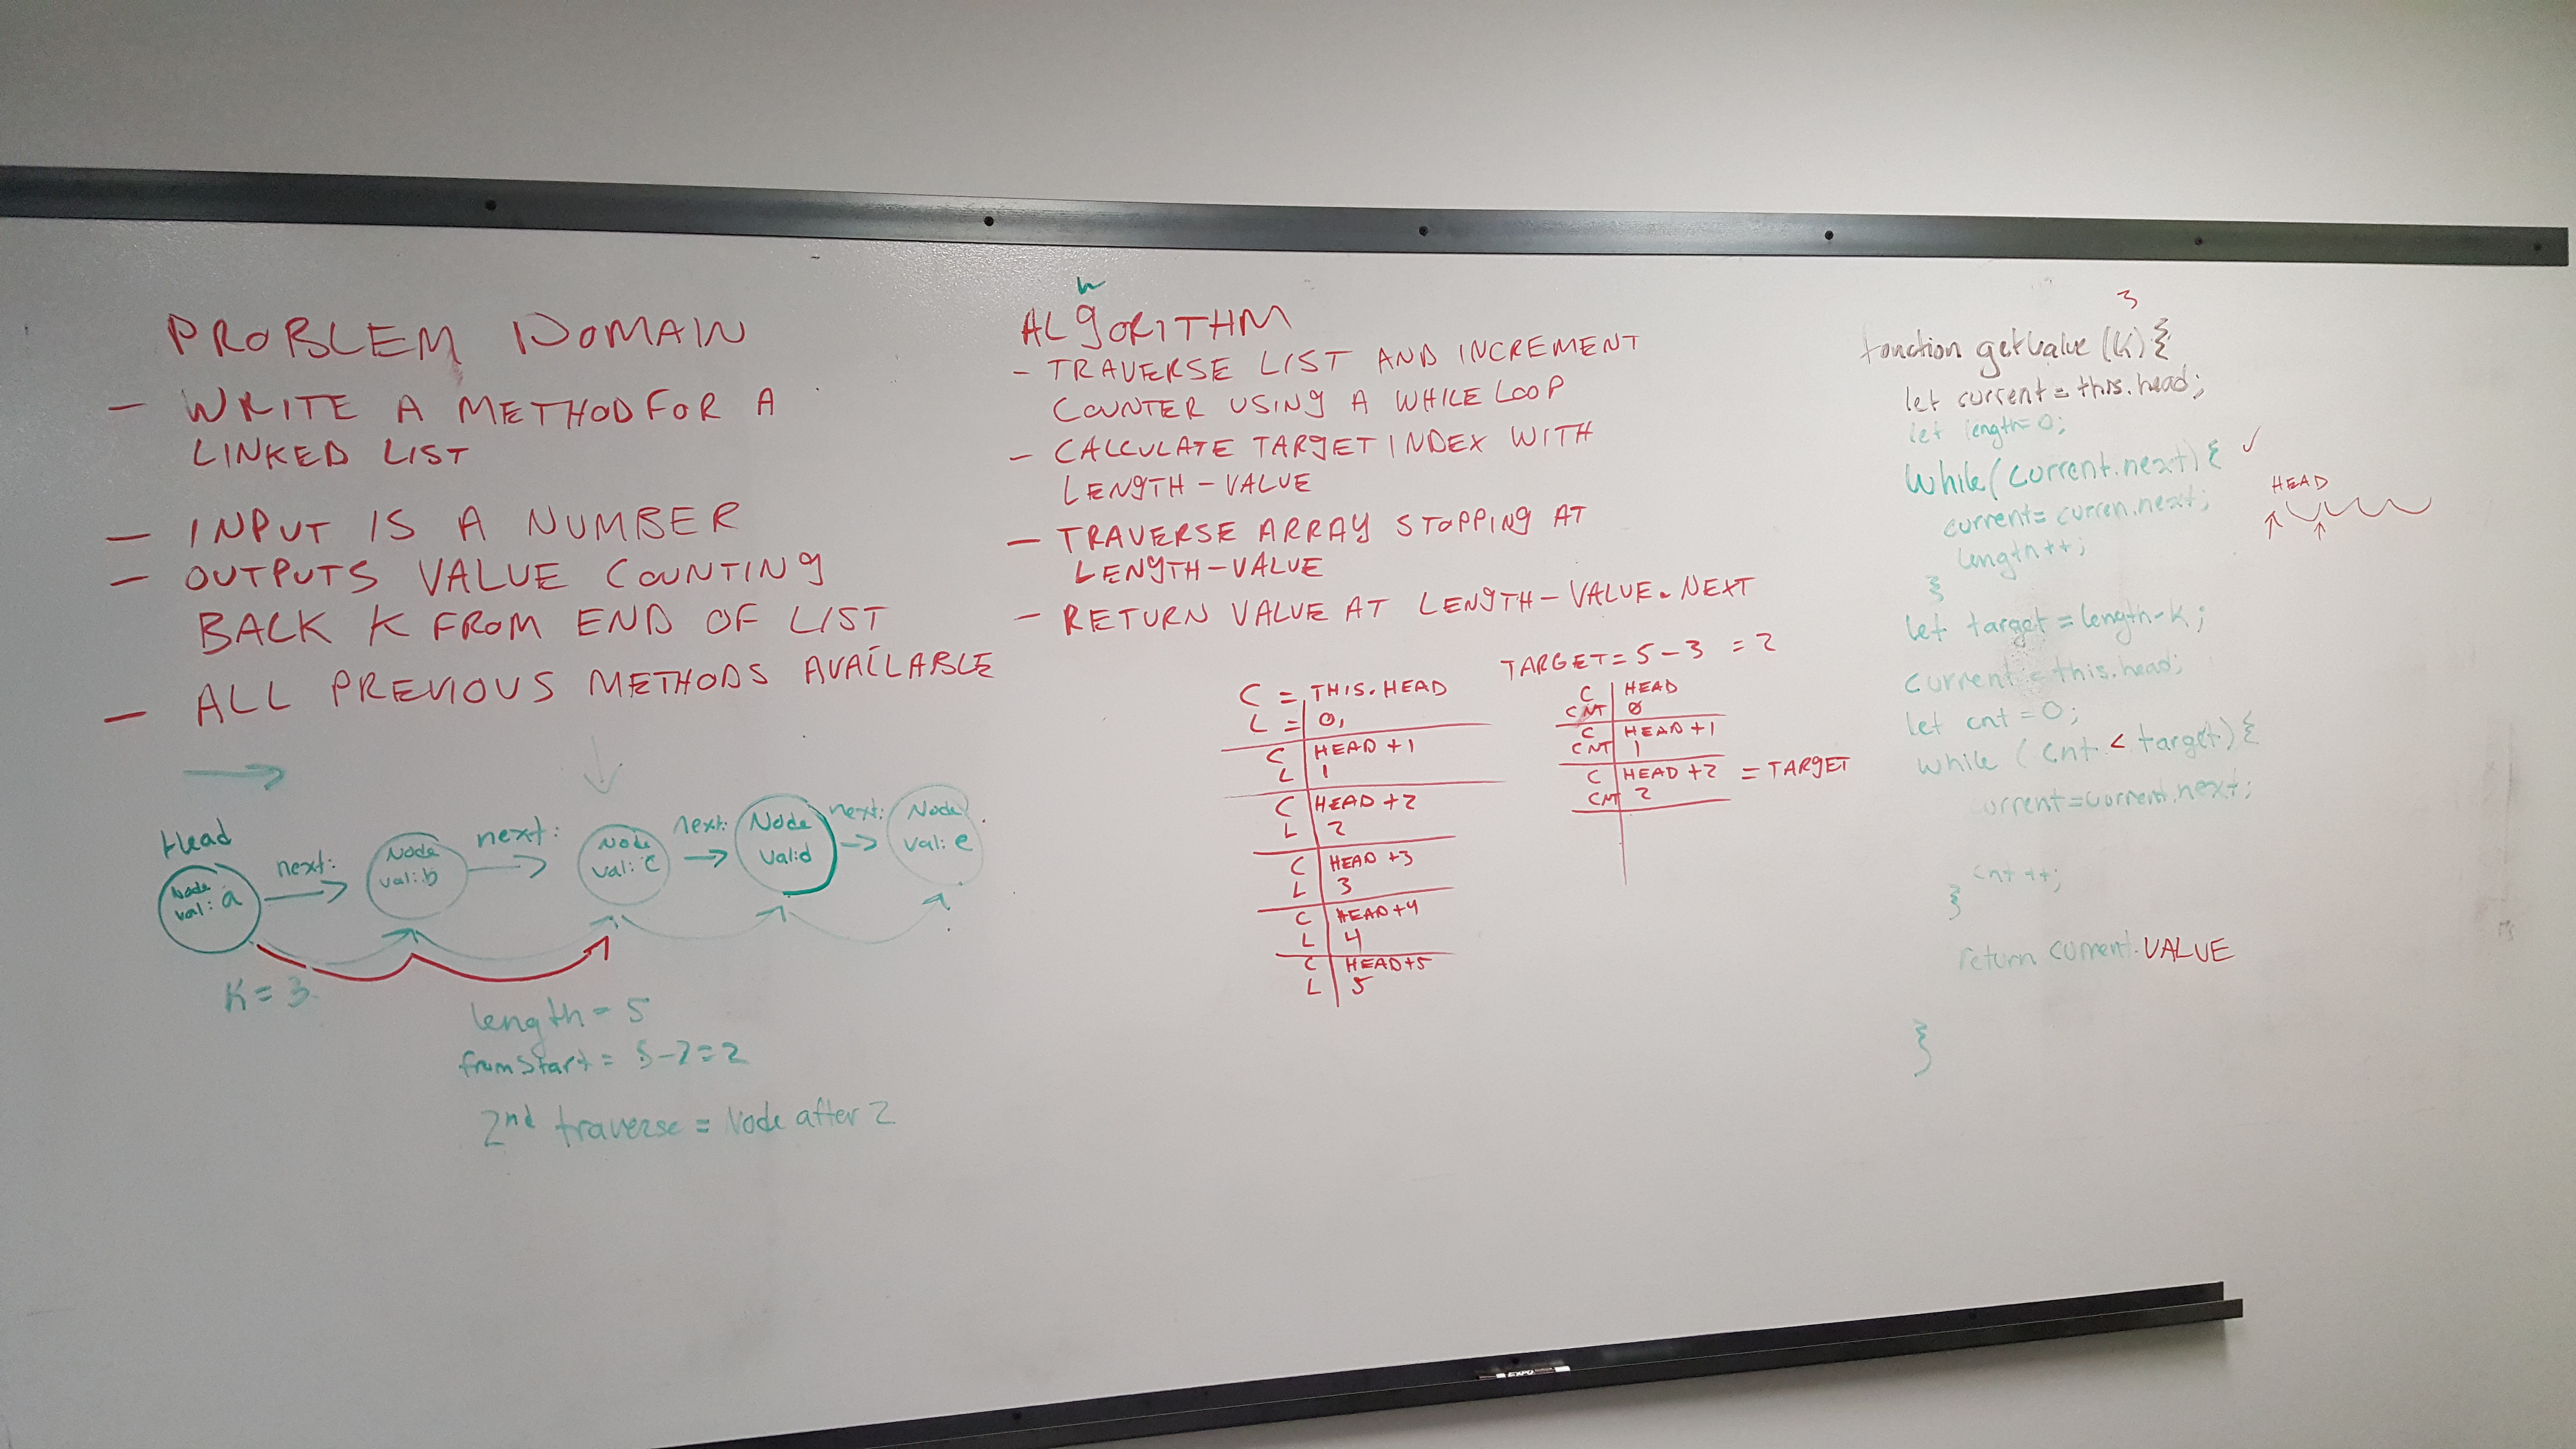 PROBLEM DOMAIN
- WRITE A METHOD FOR A
LINKED LIST
- INPUT IS A NUMBER
- OUTPUTS VALUE COUNTING
BACK K FROM END OF LIST
- ALL PREVIOUS METHODS AVAILABLE
Head
Node
val: a
next:
Node
val: b
next:
Node
val: c
next:
Node
val: d
next:
Node
val: e
K = 3
length = 5
from start = 5-3=2
2nd traverse = Node after 2
ALGORITHM
- TRAVERSE LIST AND INCREMENT
COUNTER USING A WHILE LOOP
- CALCULATE TARGET INDEX WITH
LENGTH - VALUE
- TRAVERSE ARRAY STOPPING AT
LENGTH-VALUE
- RETURN VALUE AT LENGTH-VALUE.NEXT
C = THIS.HEAD
L = 0,
C HEAD +1
L 1
C HEAD +2
L 2
C HEAD +3
L 3
C HEAD +4
L 4
C HEAD+5
L 5
TARGET = 5 - 3 = 2
C HEAD
CNT 0
C HEAD+1
CNT 1
C HEAD +2 = TARGET
CNT 2
3
function getValue (K) {
let current = this.head;
let length=0;
while(current.next) { ✓
current= curren.next;
length++;
}
let target = length-k;
current = this.head;
let cnt = 0;
while (cnt < target) {
current=current.next;
cnt ++;
}
return current.VALUE
}
HEAD
EXPO